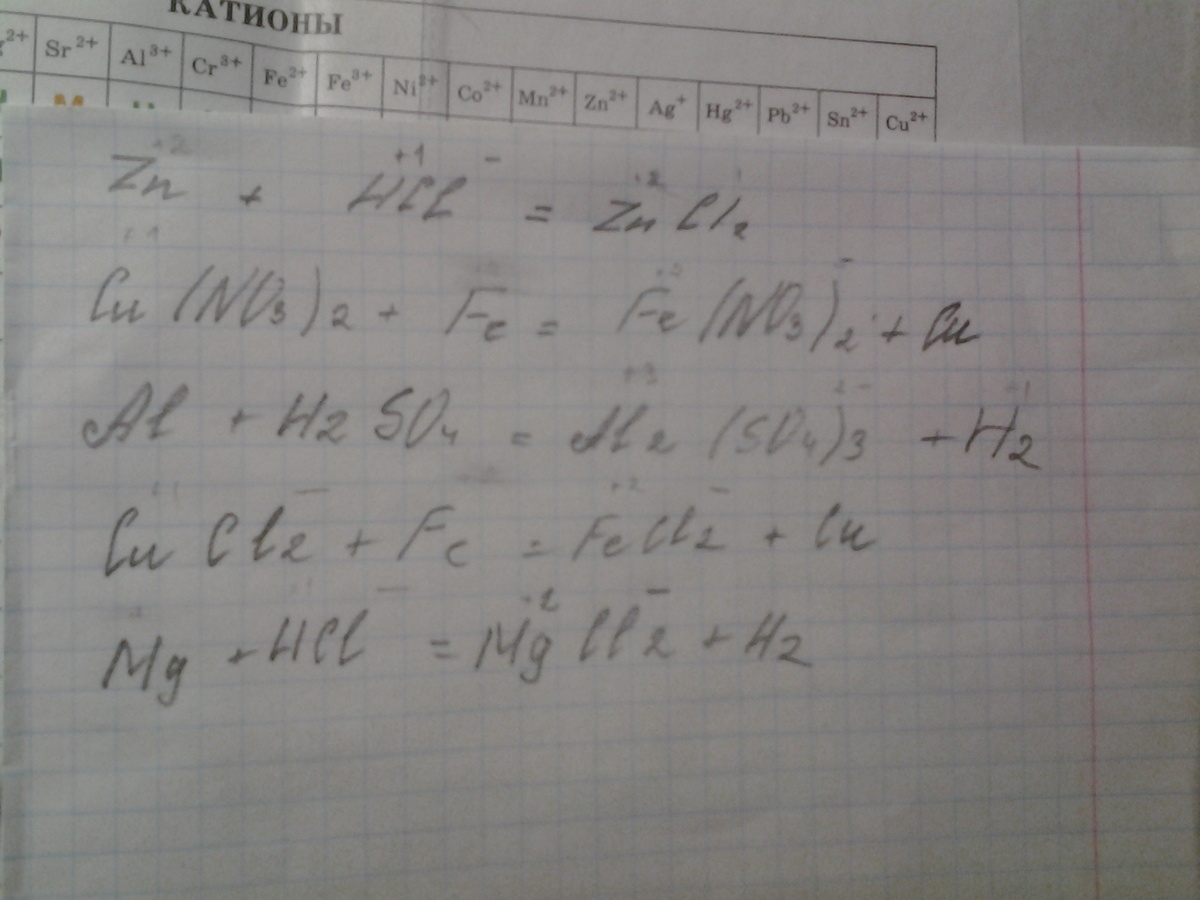 КАТИОНЫ
2+ Sr2+ Al3+ Cr3+ Fe2+ Fe3+ Ni2+ Co2+ Mn2+ Zn2+ Ag+ Hg2+ Pb2+ Sn2+ Cu2+
Zn + H+1Cl- = Zn+2Cl2
Cu(NO3)2 + Fe = Fe(NO3)2- + Cu
Al + H2SO4 = Al2+3(SO4)3 + H2
CuCl2- + Fe = Fe+2Cl2- + Cu
Mg + HCl- = Mg+2Cl2- + H2